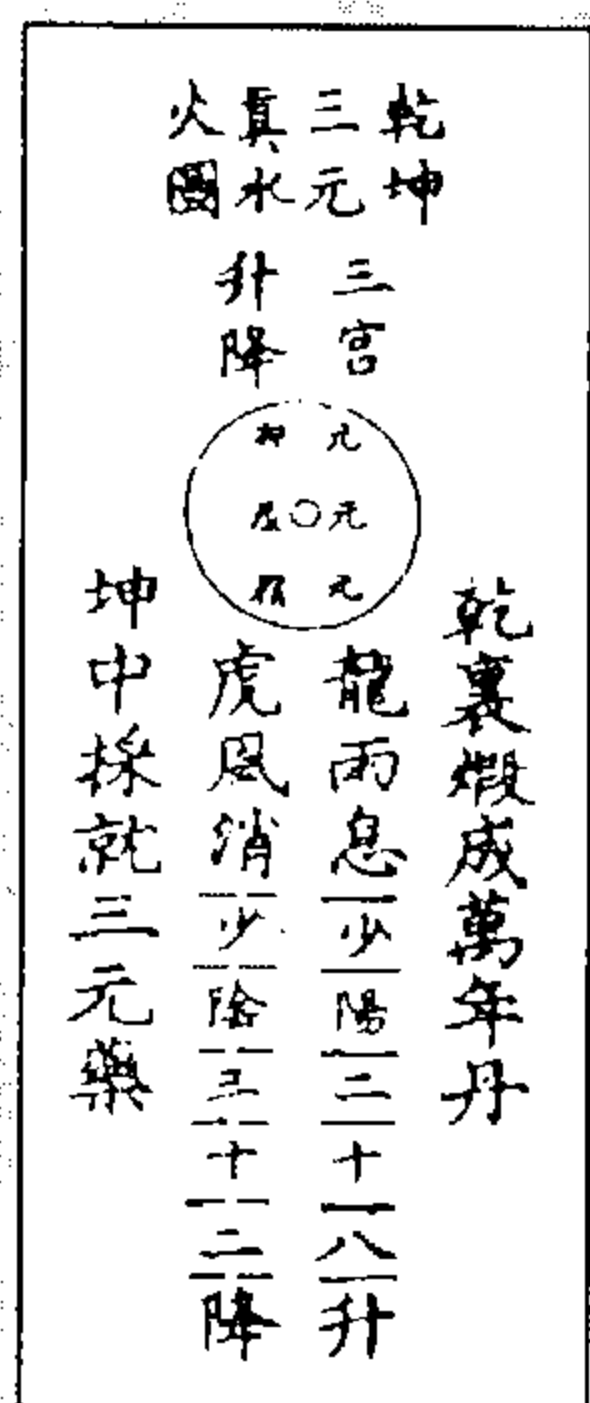 乾坤
三元
真水
火圖
三宮
升降
元神
元炁
元精
乾裏煅成萬年丹
龍雨息少陽二十八升
虎風消少陰三十二降
坤中採就三元藥